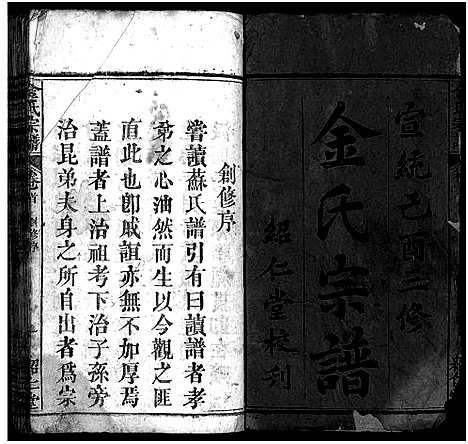 宣統己酉二修
金氏宗譜
紹仁堂校刊
創修序
嘗讀蘇氏譜引有曰讀譜者孝
弟之心油然而生以今觀之匪
直此也卽戚誼亦無不加厚焉
蓋譜者上治祖考下治子孫旁
治昆弟夫身之所自出者爲宗
金氏宗譜
卷首
創修序